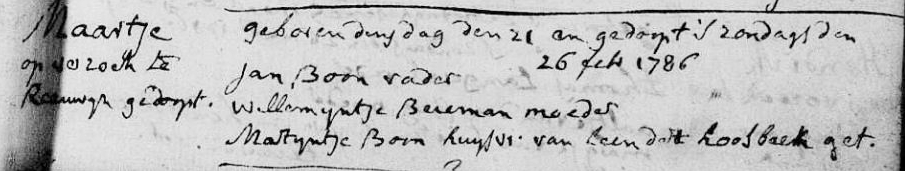 Maartje
op verzoek te
Reeuwyk gedoopt.
geboren dinsdag den 21 en gedoopt is zondags den
26 feb 1786
Jan Boon vader
Willemyntje Bereman moeder
Martyntje Boon huysvr: van Leendert Koolbeek get.